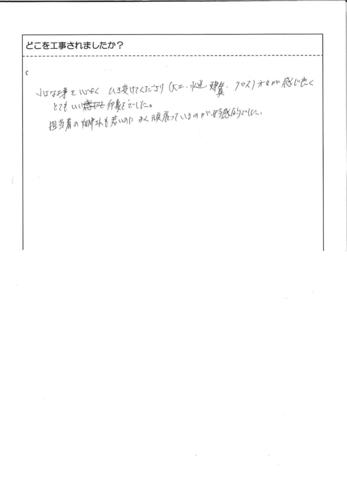 どこを工事されましたか?
小さな事も心よく ひき受けてくださり (大工、水道、建具、クロス) 方々が感じ良く
とてもいい 印象でした。
担当者の  も若いのに よく頑張っているのが好感的でした。